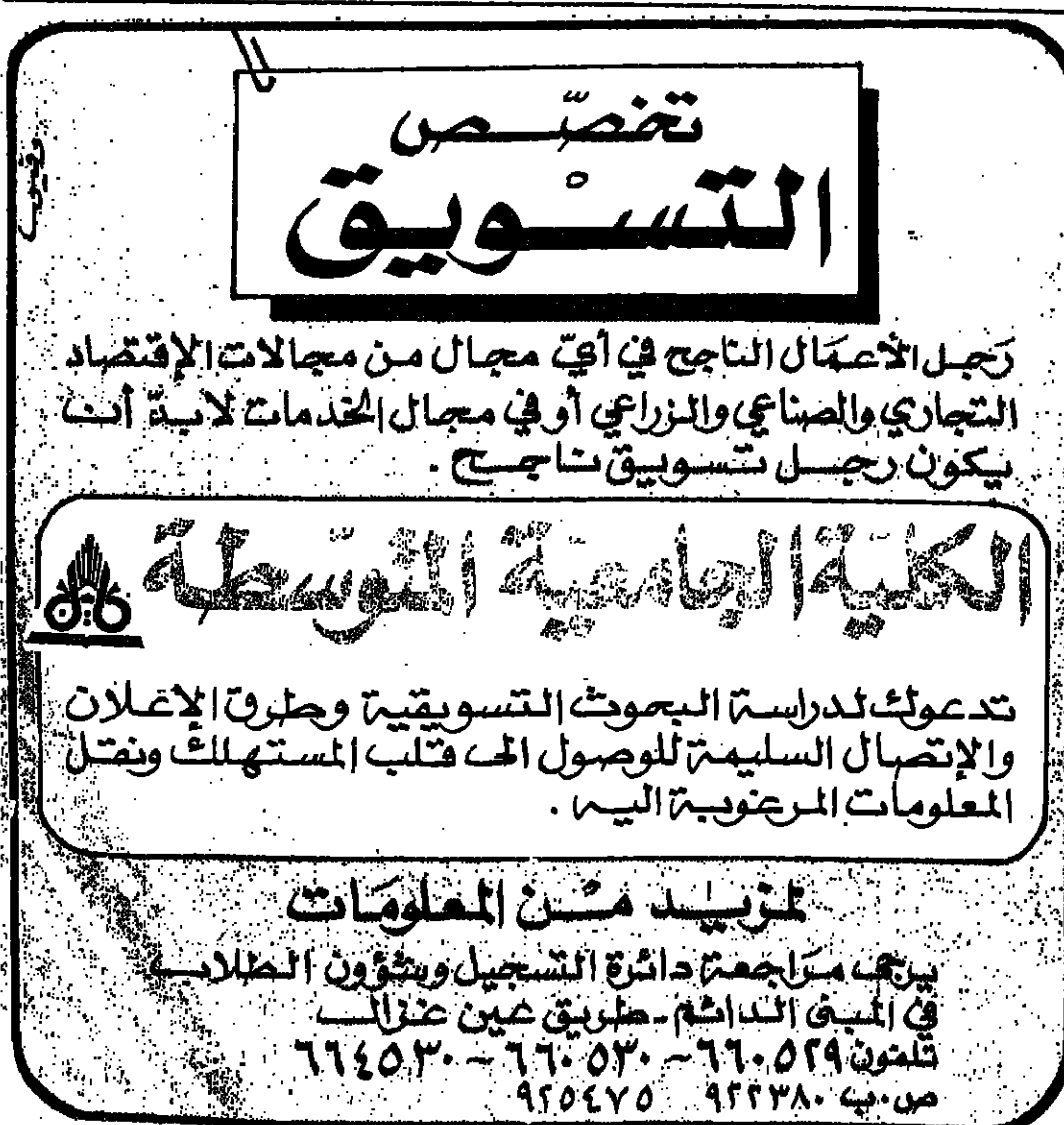 تخصّص
التسْويق
رَجل الأعمَال الناجح في أيّ مجال من مجالات الإقتصاد
التجاري والصناعي والزراعي أو في مجال الخدمات لابدّ أن
يكون رجل تسويق ناجح .
الكليّة الجامعيّة المتوسّطة
تدعوك لدراسة البحوث التسويقية وطرق الإعلان
والإتصال السليمة للوصول الى قلب المستهلك ونقل
المعلومات المرغوبة اليه .
لمزيد من المعلومَات
يرجى مرَاجعة دائرة التسجيل وشؤون الطلاب
في المبنى الدائم - طريق عين غزال
تلفون ٦٦٠٥٢٩ - ٦٦٠٥٣٠ - ٦٦٤٥٣٠
ص.ب ٩٢٢٣٨٠ ٩٢٥٤٧٥